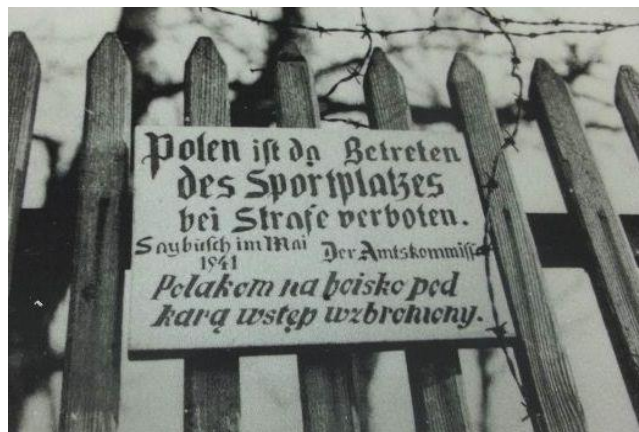 Polen ist da Betreten
des Sportplatzes
bei Strafe verboten.
Saybusch im Mai
1941
Der Amtskommiss
Polakom na boisko pod
karą wstęp wzbroniony.